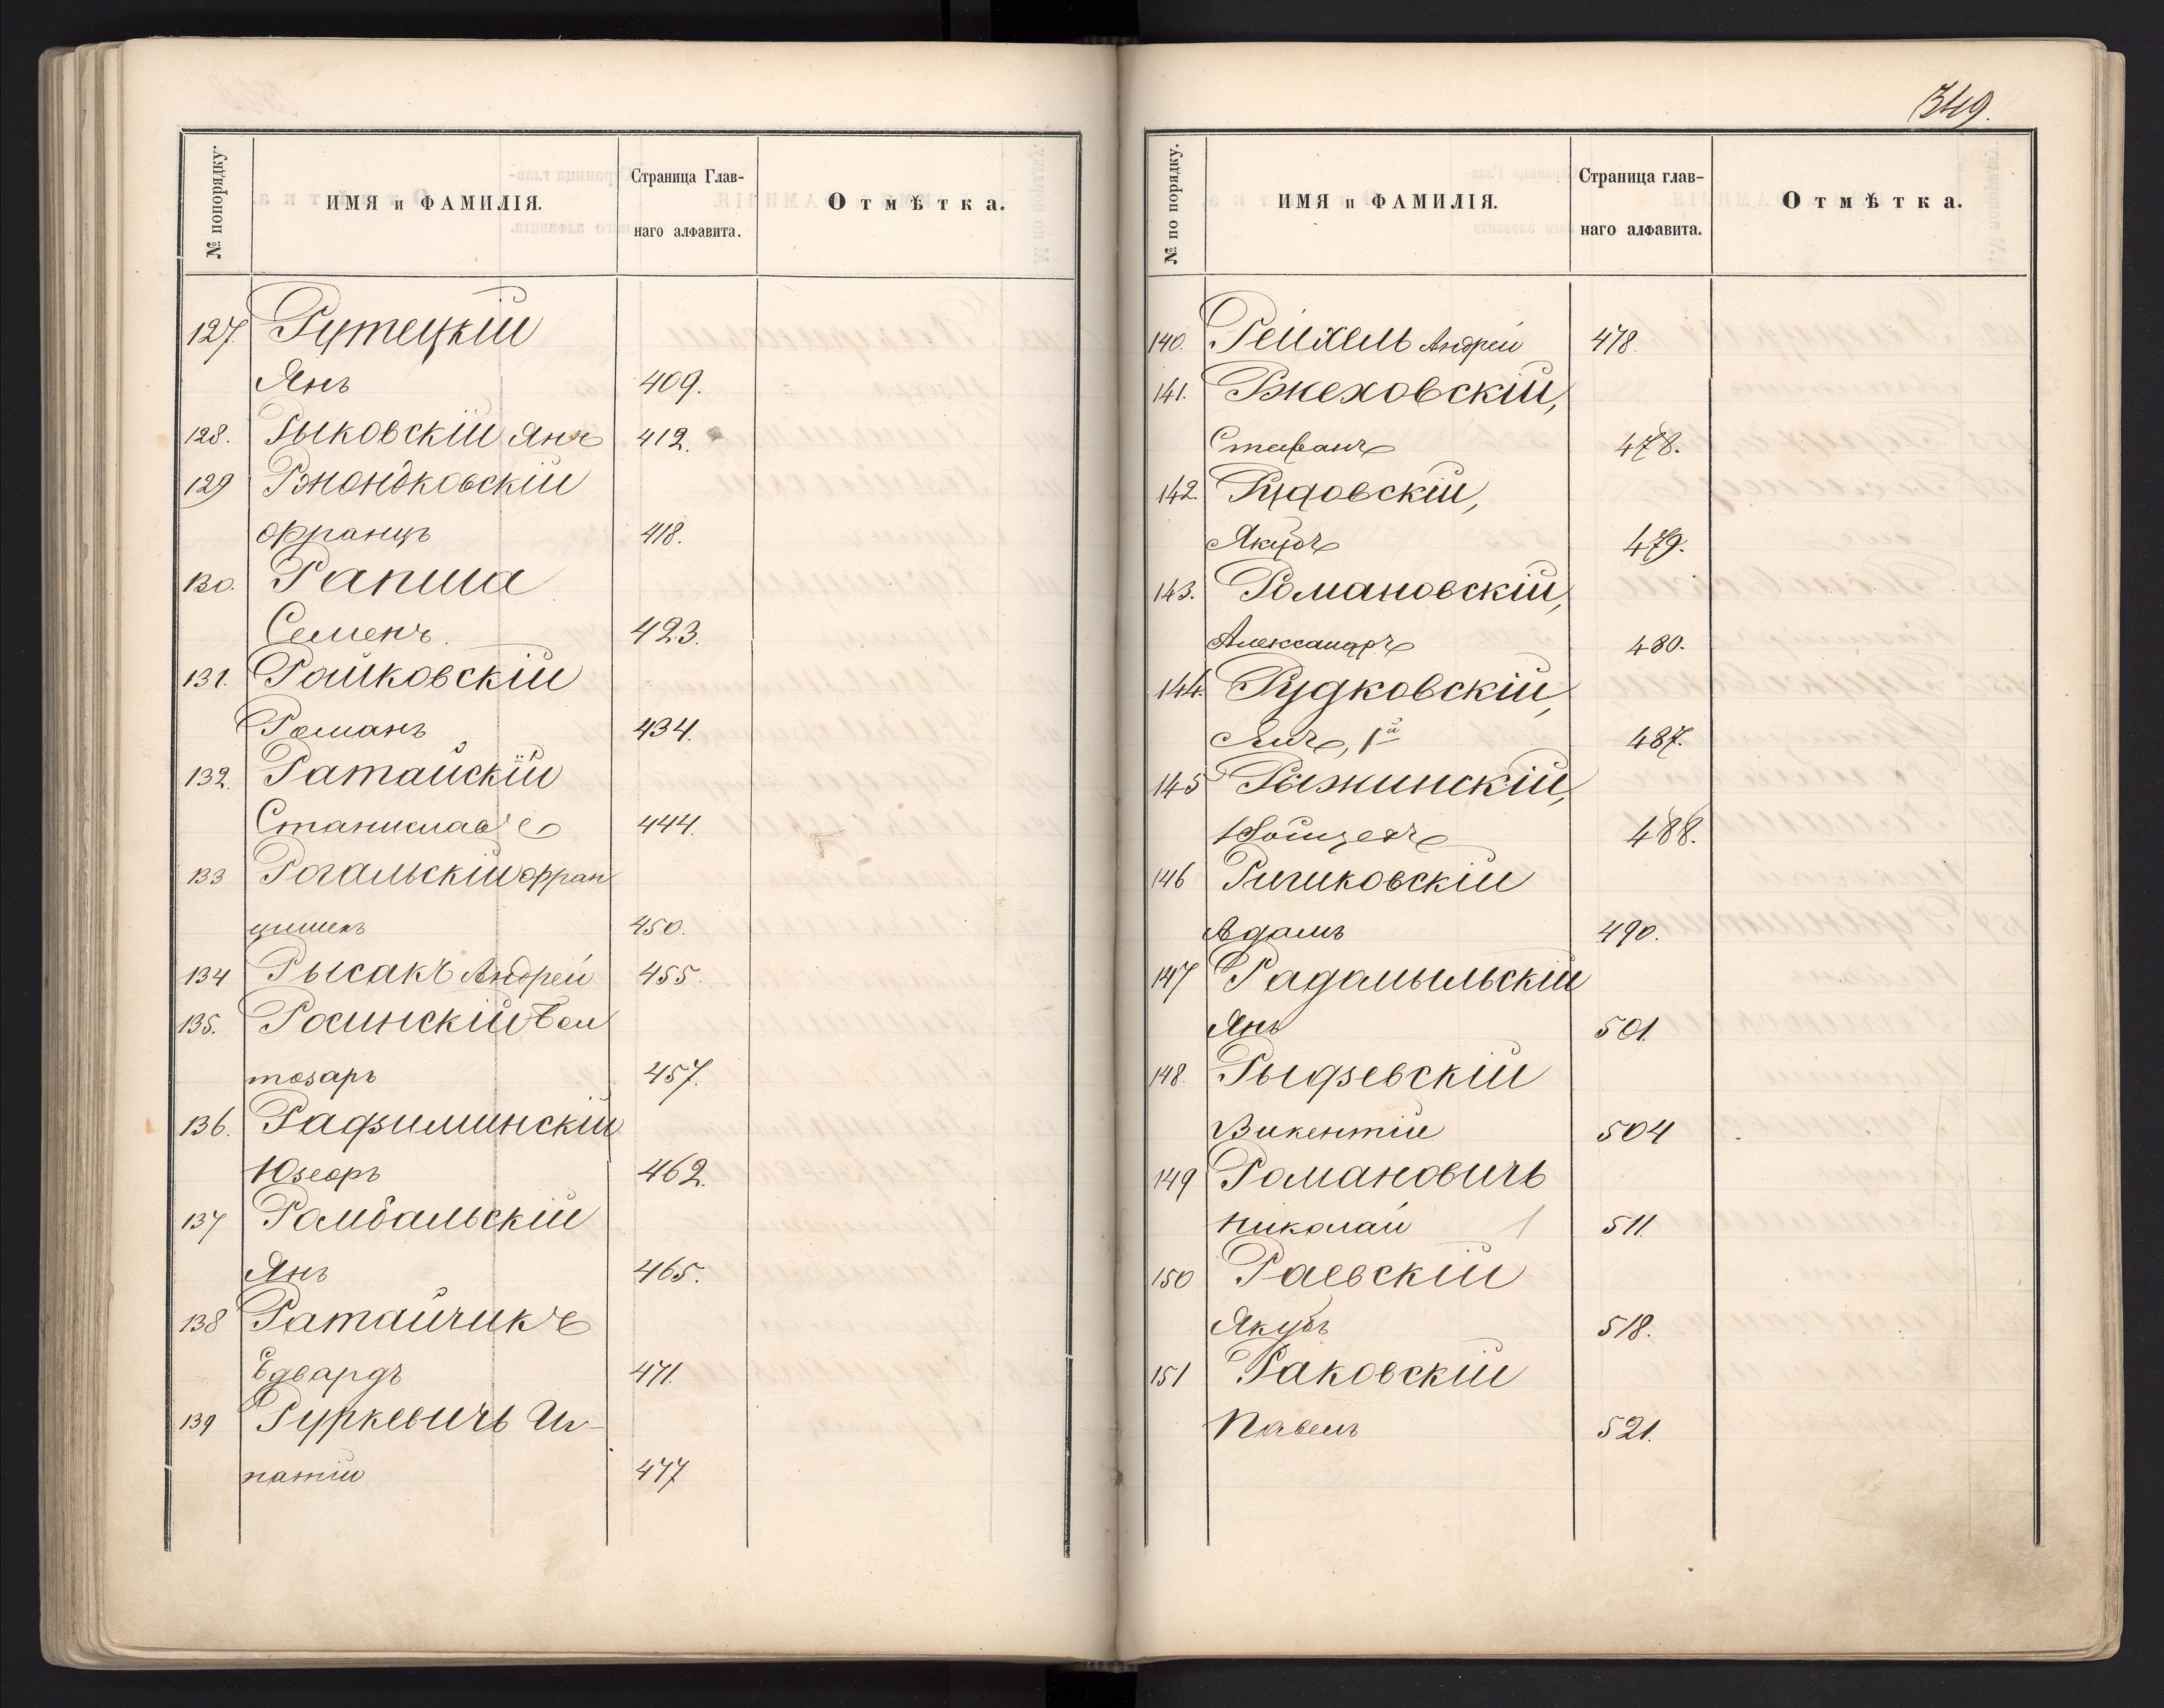 № попорядку.
ИМЯ и ФАМИЛІЯ.
Страница Глав-
наго алфавита.
Отмѣтка.
127. Рутецкій
Янъ 409.
128. Рыковскій Янъ 412.
129 Ржондковскій
Францъ 418.
130. Рапша
Семенъ. 423.
131.Ройковскій
Романъ 434.
132. Ратайскій
Станиславъ 444.
133 Рогальскій Фран
цишекъ 450.
134 Рысакъ Андрей 455.
135. Росинскій Бал
тозаръ 457.
136. Радзиминскій
Юзефъ 462.
137 Ромбальскій
Янъ 465.
138 Ратайчикъ
Едвардъ 471.
139 Руркевичъ Иг-
натій 477
349.
№ по порядку.
ИМЯ и ФАМИЛІЯ.
Страница глав-
наго алфавита.
Отмѣтка.
140. Рейхель Андрей 478.
141. Ржеховскій,
Стефанъ 478.
142. Рудовскій,
Якубъ 479.
143. Романовскій,
Александръ 480.
144. Рудковскій,
Янъ, 1й 487.
145 Рыжинскій,
Войцехъ 488.
146 Ричиковскій
Адамъ 490.
147 Радомыльскій
Янъ 501.
148. Рыдзевскій
Викентій 504
149 Романовичъ
Николай 511.
150 Раевскій
Якубъ 518.
151 Раковскій
Павелъ 521.